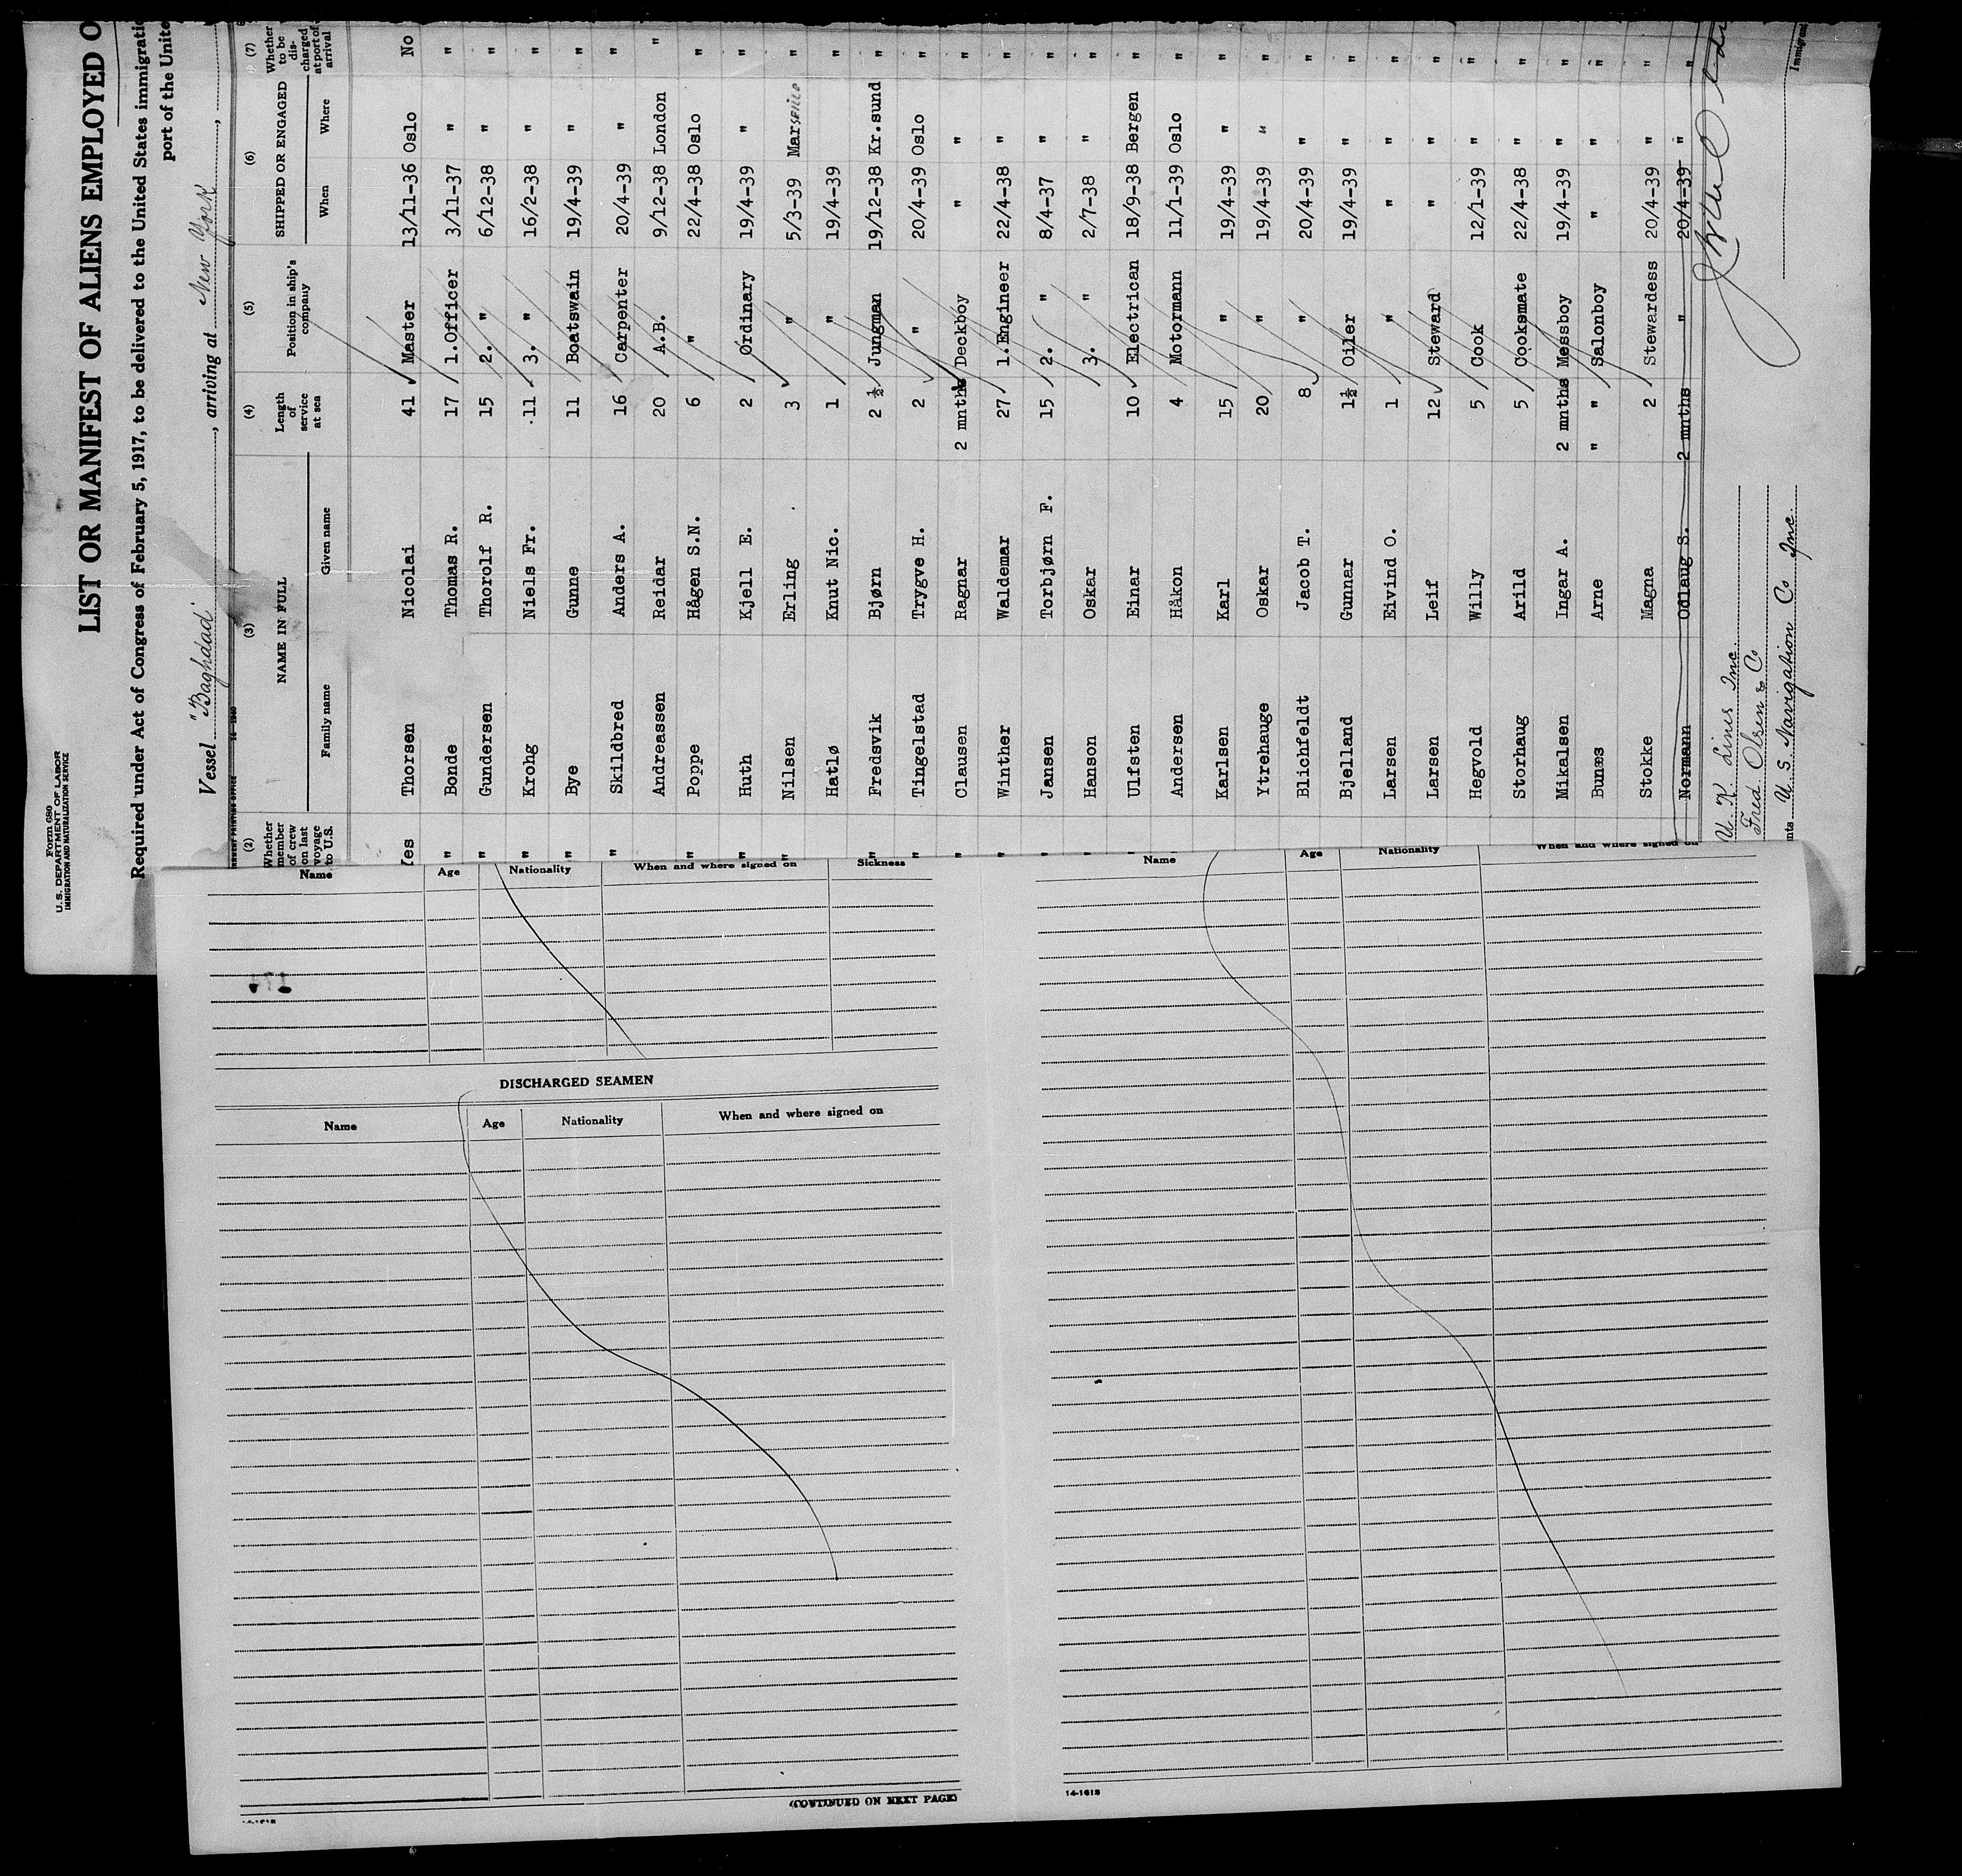 Form 680
U. S. DEPARTMENT OF LABOR
IMMIGRATION AND NATURALIZATION SERVICE
LIST OR MANIFEST OF ALIENS EMPLOYED O
Required under Act of Congress of February 5, 1917, to be delivered to the United States immigrati
port of the Unite
Vessel "Baghdad", arriving at New York,
(2) (3) (4) (5) (6) (7)
Whether member of crew on last voyage to U.S. NAME IN FULL Length of service at sea Position in ship's company SHIPPED OR ENGAGED Whether to be discharged at port of arrival
Family name Given name When Where
Yes Thorsen Nicolai 41 Master 13/11-36 Oslo No
" Bonde Thomas R. 17 1.Officer 3/11-37 " "
" Gundersen Thorolf R. 15 2. " 6/12-38 " "
" Krohg Niels Fr. 11 3. " 16/2-38 " "
" Bye Gunne 11 Boatswain 19/4-39 " "
" Skildbred Anders A. 16 Carpenter 20/4-39 " "
Andreassen Reidar 20 A.B. 9/12-38 London "
" Poppe Hågen S.N. 6 " 22/4-38 Oslo "
" Huth Kjell E. 2 Ordinary 19/4-39 " "
" Nilsen Erling 3 " 5/3-39 "
Hatlø Knut Nic. 1 " 19/4-39 " "
" Fredsvik Bjørn 2 ½ Jungman 19/12-38 Kr.sund "
" Tingelstad Trygve H. 2 " 20/4-39 Oslo "
" Clausen Ragnar 2 mnths Deckboy " " "
" Winther Waldemar 27 1.Engineer 22/4-38 " "
" Jansen Torbjørn F. 15 2. " 8/4-37 " "
" Hanson Oskar 3. " 2/7-38 " "
" Ulfsten Einar 10 Electrican 18/9-38 Bergen "
" Andersen Håkon 4 Motormann 11/1-39 Oslo "
Karlsen Karl 15 " 19/4-39 " "
Ytrehauge Oskar 20 " 19/4-39 " "
Blichfeldt Jacob T. 8 " 20/4-39 " "
Bjelland Gunnar 1½ Oiler 19/4-39 " "
Larsen Eivind O. 1 " " " "
Larsen Leif 12 Steward " " "
Hegvold Willy 5 Cook 12/1-39 " "
Storhaug Arild 5 Cooksmate 22/4-38 " "
Mikalsen Ingar A. 2 mnths Messboy 19/4-39 " "
Bunæs Arne " " Salonboy " " "
Stokke Magna 2 Stewardess 20/4-39 " "
Normann Odlaug S. 2 mnths " 20/4-39 " "
U. K. Lines Inc.
Fred. Olsen & Co
nts U. S. Navigation Co Inc.
Immigrant
Name Age Nationality When and where signed on Sickness
DISCHARGED SEAMEN
Name Age Nationality When and where signed on
(CONTINUED ON NEXT PAGE)
Name Age Nationality When and where signed on
14-1618